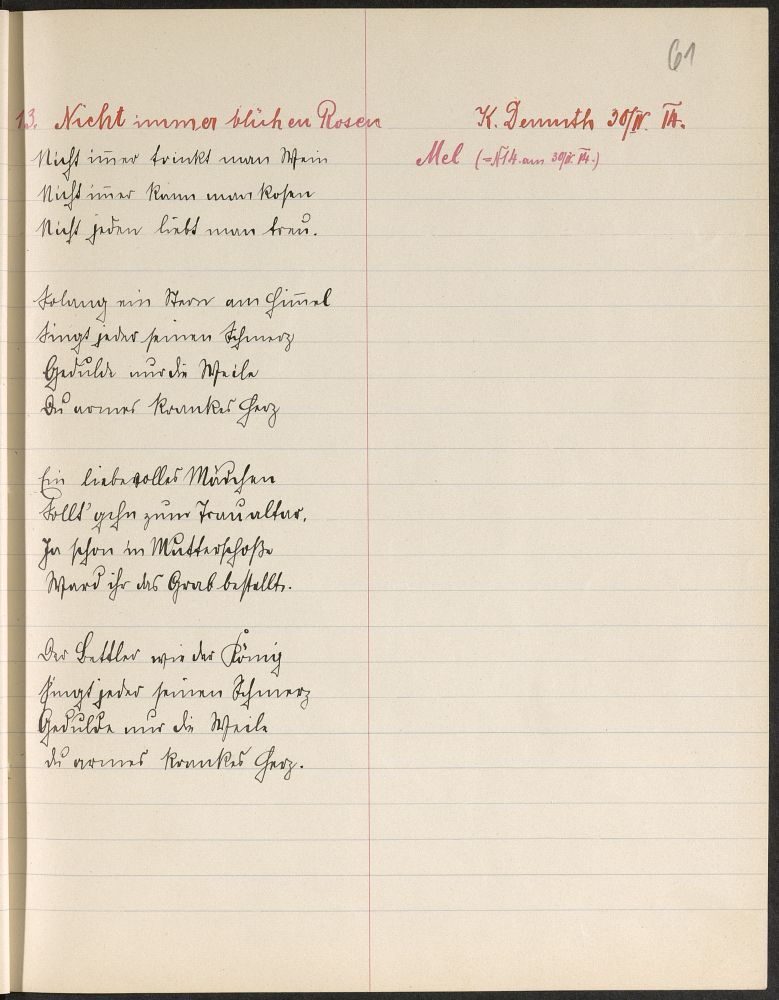 61
13. Nicht immer blühen Rosen
K. Demuth 30/IV. 14.
Mel (=N14. am 30/IV. 14.)
Nicht im̅er trinkt man Wein
Nicht im̅er kann man kosen
Nicht jeden liebt man treu.
Solang ein Stern am Him̅el
Singt jeder seinen Schmerz
Gedulde nur die Weile
Du armes krankes Herz
Ein liebevolles Mädchen
Sollt' gehn zum Traualtar,
Ja schon im Mutterschoße
Ward ihr das Grab bestellt.
Der Bettler wie der König
Singt jeder seinen Schmerz
Gedulde nur die Weile
du armes krankes Herz.